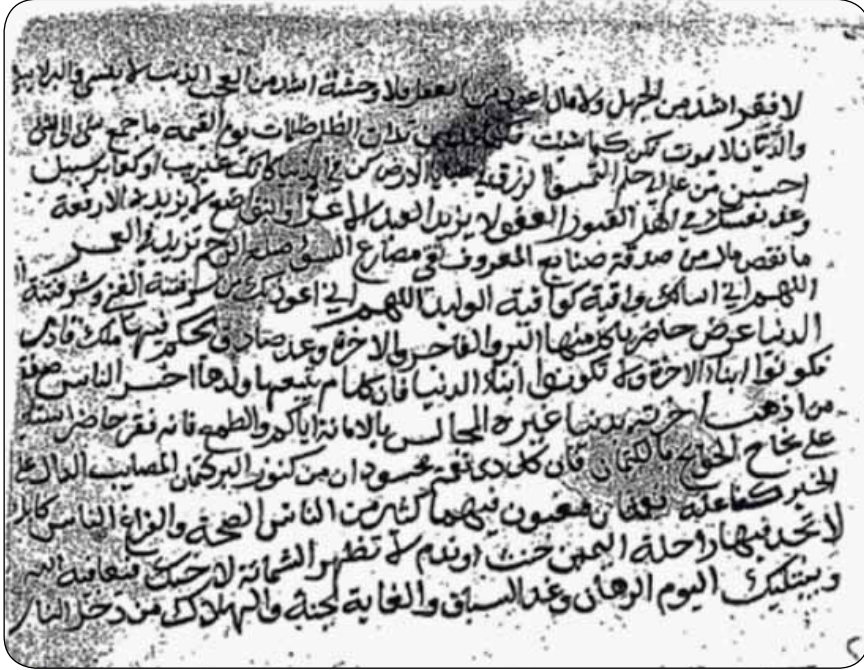 لا فقر اشد من الجهل ولا مال اعود من العقل ولا وحشة اشد من العجب الذنب لا ينسى والبر لا يبلى
والديّان لا يموت كن كما شئت كما تدين تدان الظلم ظلمات يوم القيمه ما جمع شى الى شى
احسن من علم الى حلم التمسوا الرزق في خبايا الارض كن في الدنيا كانك غريب او كعابر سبيل
وعد نفسك في اهل القبور العفو لا يزيد العبد الا عزا والتواضع لا يزيده الا رفعة
ما نقص مال من صدقة صنايع المعروف تقي مصارع السوء صلة الرحم تزيد في العمر
اللهم اني اسالك واقية كواقية الوليد اللهم اني اعوذ بك من شر فتنة الغنى وشر فتنة
الدنيا عرض حاضر ياكل منها البر والفاجر والاخرة وعد صادق يحكم فيها ملك قادر
فكونوا ابناء الاخرة ولا تكونوا ابناء الدنيا فان كل ام يتبعها ولدها اخسر الناس صفقة
من اذهب اخرته بدنيا غيره المجالس بالامانة اياكم والطمع فانه فقر حاضر استعينوا
على نجاح الحوايج بالكتمان فان كل ذي نعمة محسود ان من كنوز البر كتمان المصايب الدال على
الخير كفاعله نعمتان مغبون فيهما كثير من الناس الصحة والفراغ الناس كابل
لا تجد فيها راحلة اليمين حنث او ندم لا تظهر الشماتة لاخيك فيعافيه الله
ويبتليك اليوم الرهان وغدا السباق والغاية الجنة والهلاك من دخل النار